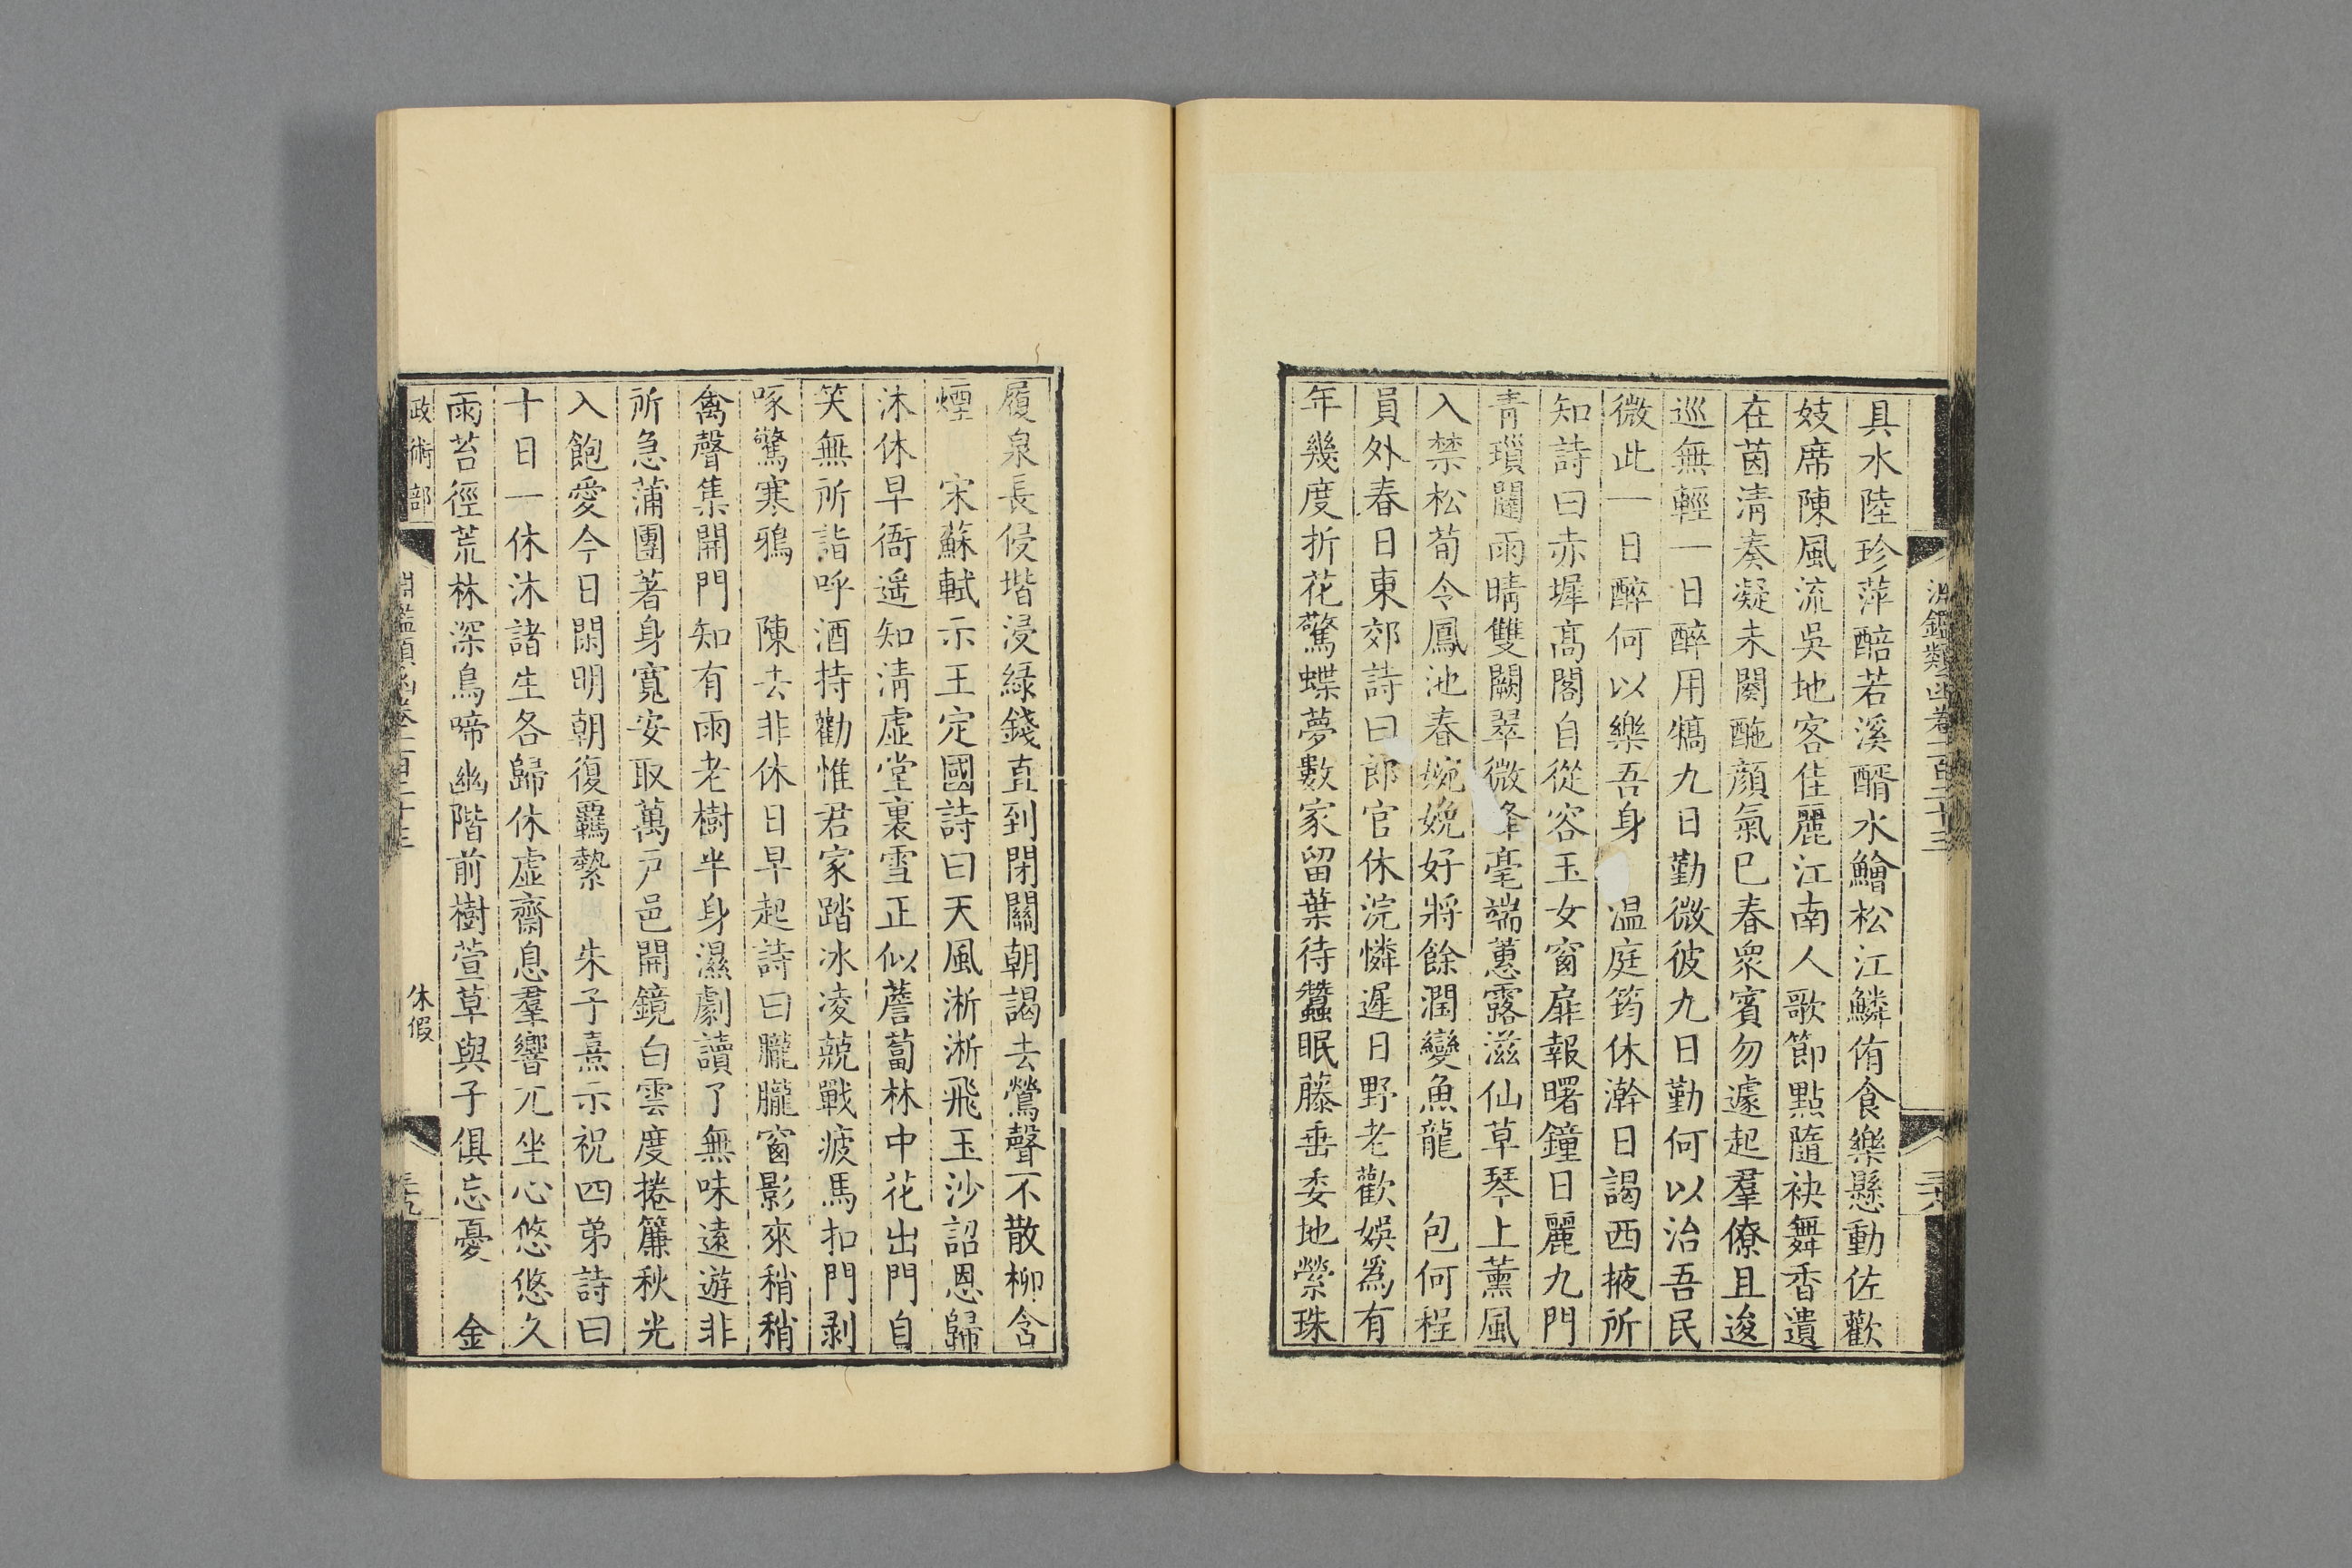 淵鑑類函卷一百二十三
具水陸珍萍醅若溪醑水鱠松江鱗侑食樂懸動佐歡
妓席陳風流吳地客佳麗江南人歌節點隨袂舞香遺
在茵清奏凝未闋酡顔氣已春衆賓勿遽起羣僚且逡
巡無輕一日醉用犒九日勤微彼九日勤何以治吾民
微此一日醉何以樂吾身　温庭筠休澣日謁西掖所
知詩曰赤墀高閣自從容玉女窗扉報曙鐘日麗九門
青瑣闥雨晴雙闕翠微峰毫端蕙露滋仙草琴上薰風
入禁松荀令鳳池春婉娩好將餘潤變魚龍　包何程
員外春日東郊詩曰郎官休浣憐遲日野老歡娛爲有
年幾度折花驚蝶夢數家留葉待蠶眠藤垂委地縈珠
履泉長侵堦浸綠錢直到閉關朝謁去鶯聲不散柳含
煙　宋蘇軾示王定國詩曰天風淅淅飛玉沙詔恩歸
沐休早衙遥知清虛堂裏雪正似薝蔔林中花出門自
笑無所詣呼酒持勸惟君家踏冰凌兢戰疲馬扣門剥
啄驚寒鴉　陳去非休日早起詩曰朧朧窗影來稍稍
禽聲集開門知有雨老樹半身濕劇讀了無味遠遊非
所急蒲團著身寬安取萬户邑開鏡白雲度捲簾秋光
入飽愛今日閑明朝復羈縶　朱子熹示祝四弟詩曰
十日一休沐諸生各歸休虛齋息羣響兀坐心悠悠久
雨苔徑荒林深鳥啼幽階前樹萱草與子俱忘憂　金
政術部
淵鑑類函卷一百二十三
休假